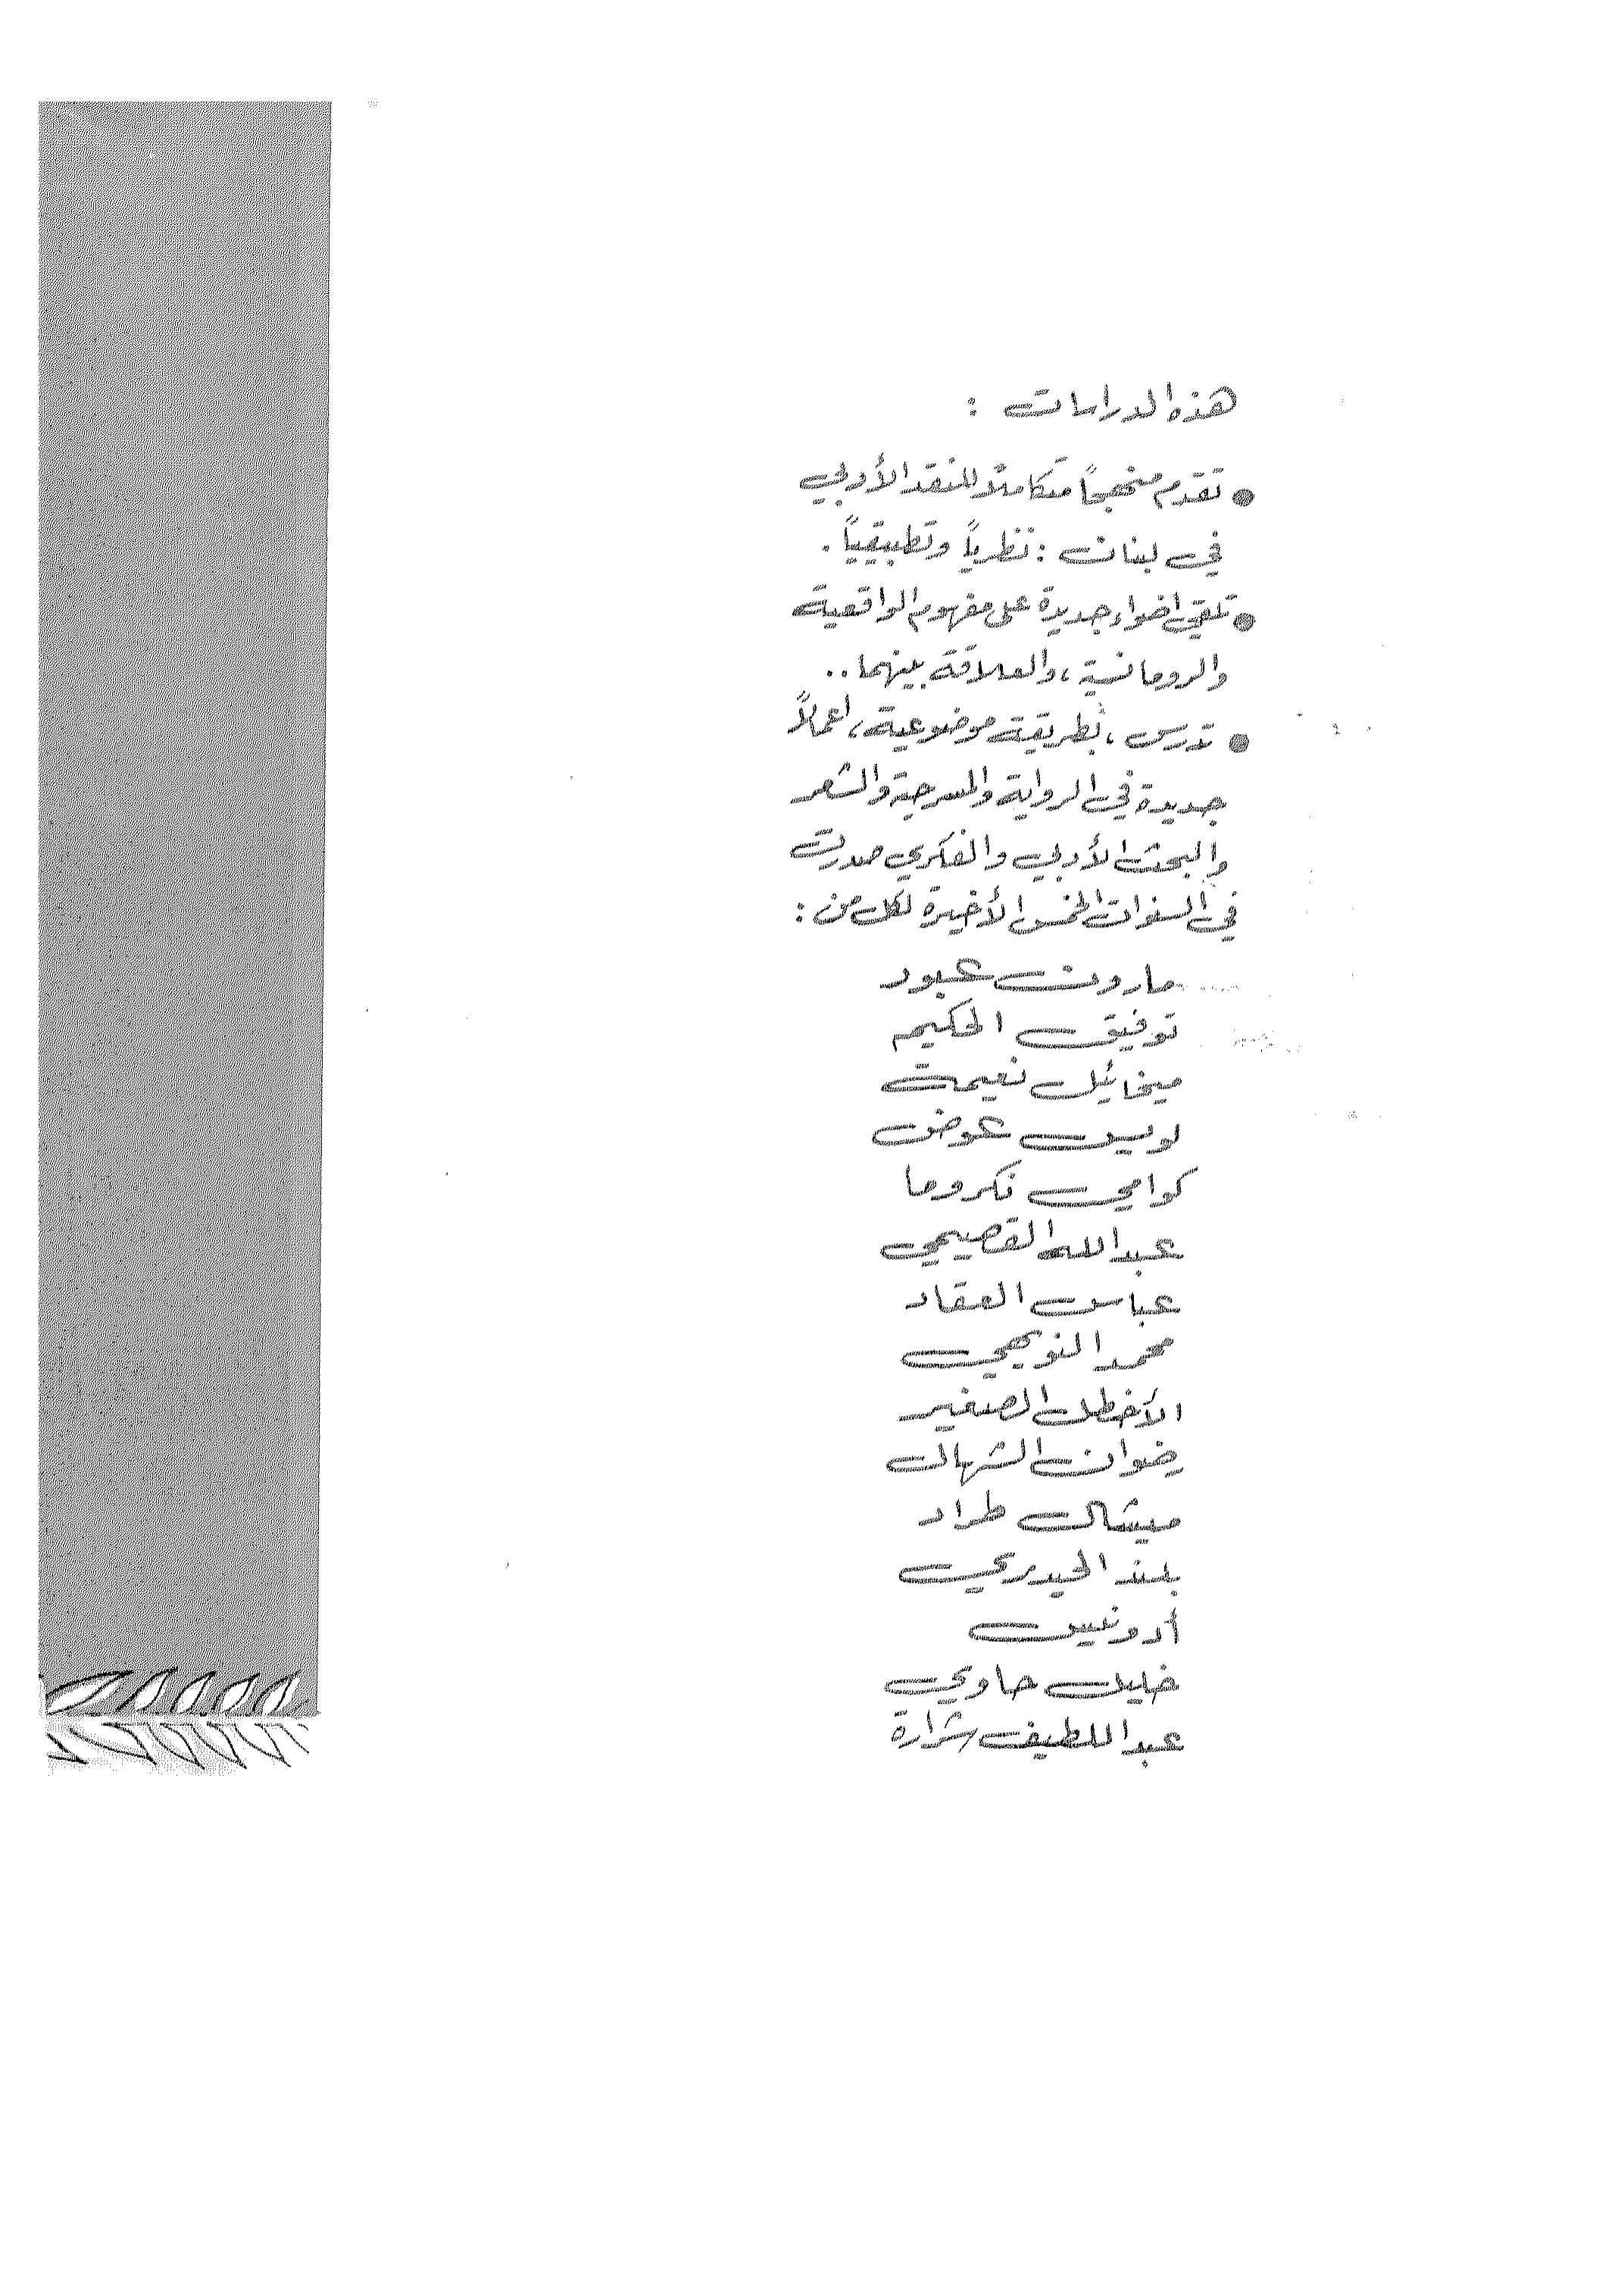 هذه الدراسات :
● تقدم منهجاً متكاملاً للنقد الأدبي
في لبنان : نظرياً وتطبيقياً .
● تلقي اضواء جديدة على مفهوم الواقعية
والرومانسية ، والعلاقة بينهما ..
● تدرس ، بطريقة موضوعية ، اعمالاً
جديدة في الرواية والمسرحية والشعر
والبحث الأدبي والفكري صدرت
في السنوات الخمس الأخيرة لكل من :
مارون عبود
توفيق الحكيم
ميخائيل نعيمة
لويس عوض
كوامي نكروما
عبد الله القصيمي
عباس العقاد
محمد النويهي
الأخطل الصغير
رضوان الشهال
ميشال طراد
بلند الحيدري
أدونيس
خليل حاوي
عبد اللطيف شرارة